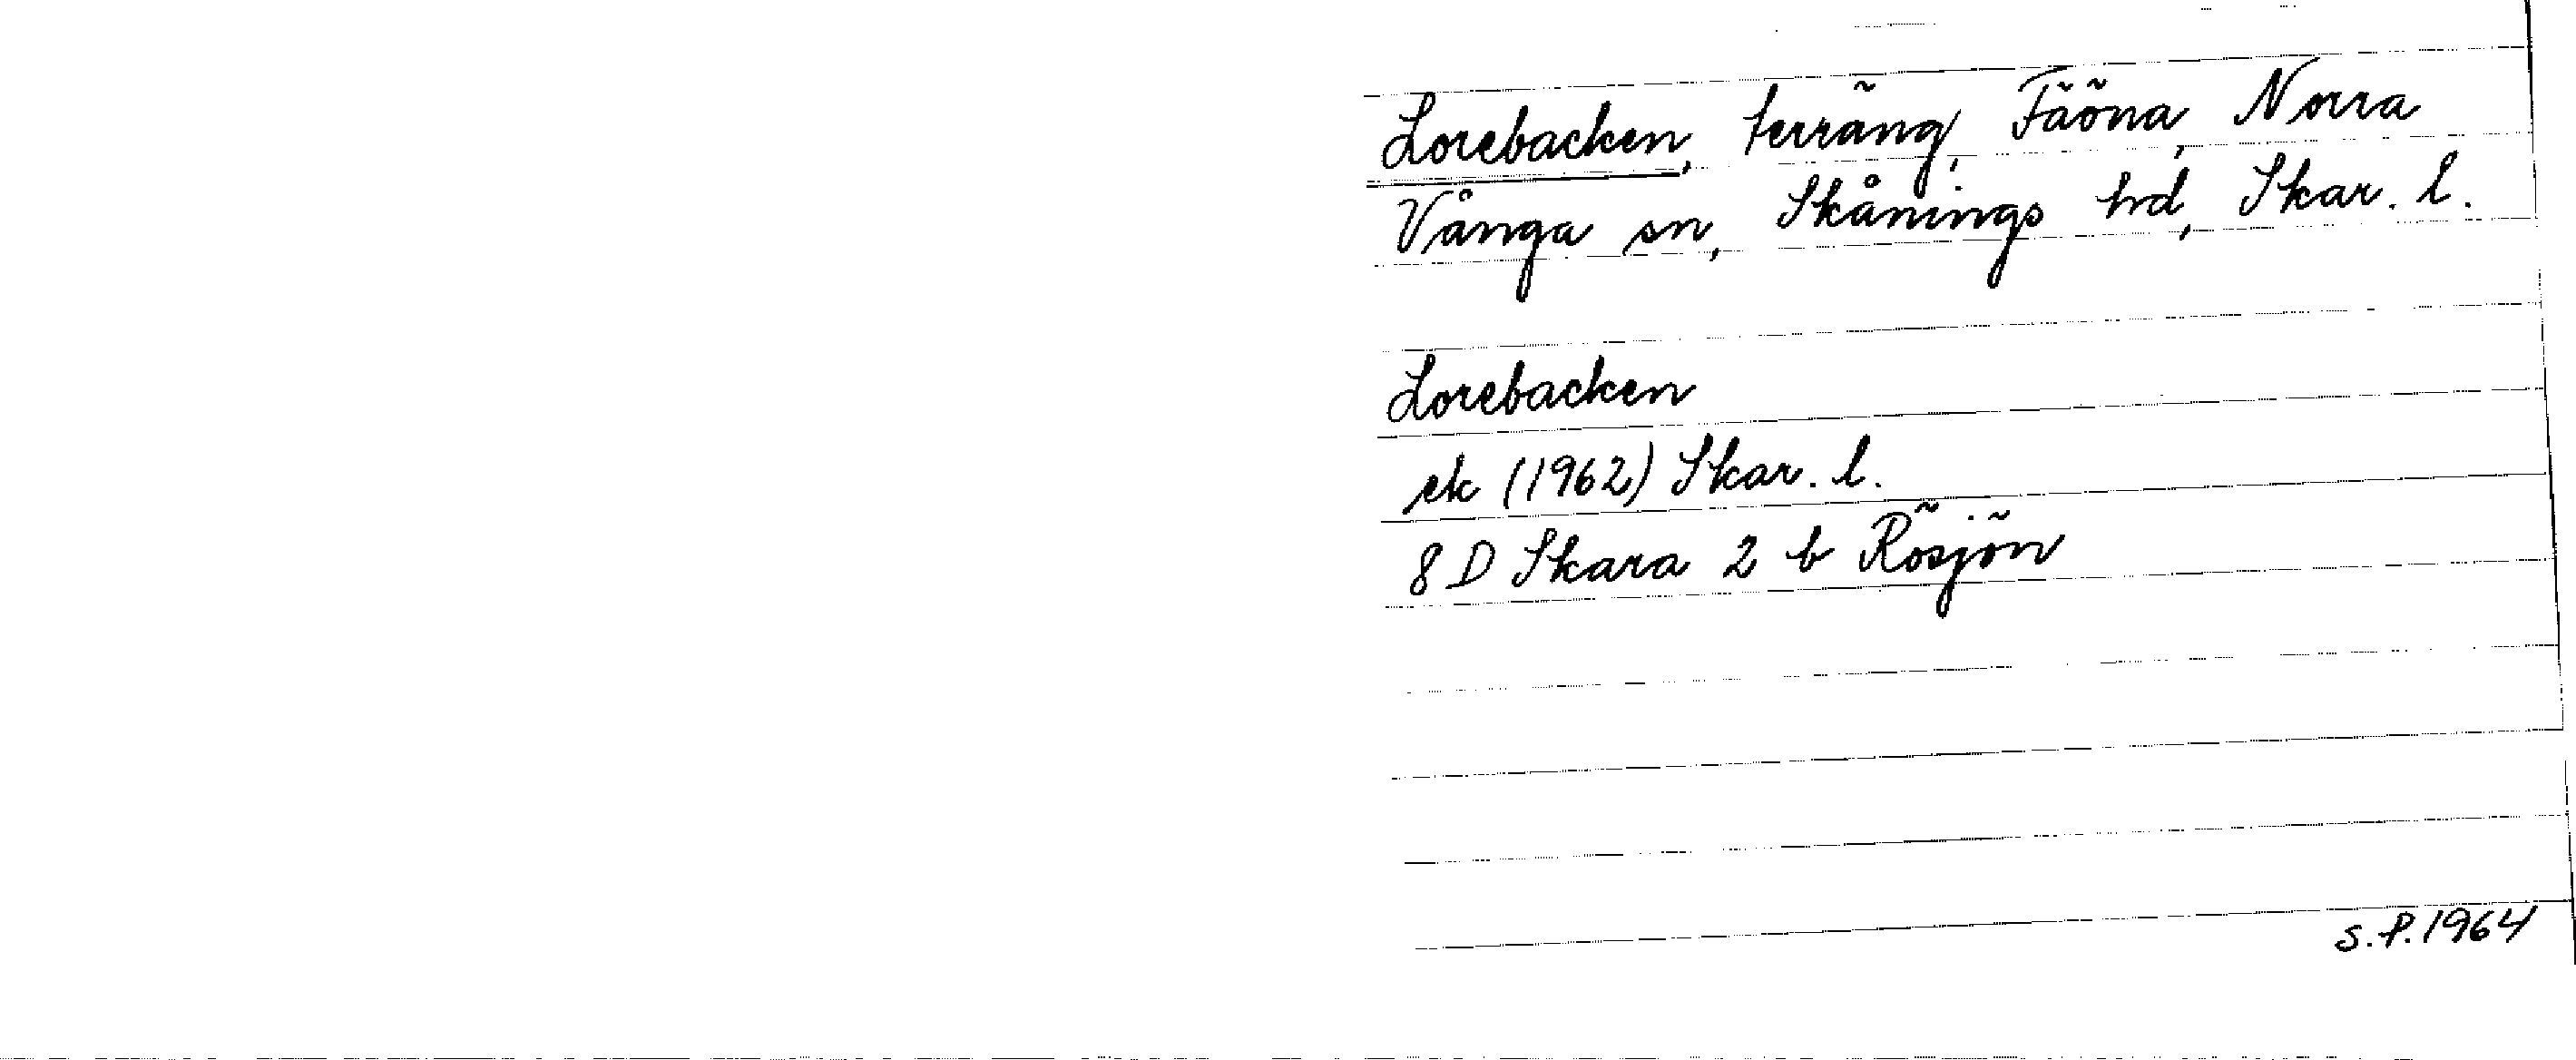 Lorebacken, terräng, Fäöna, Norra
Vånga sn, Skånings hd, Skar. l.
Lorebacken
ek (1962) Skar. l.
8 D Skara 2 b Rösjön
S.P. 1964